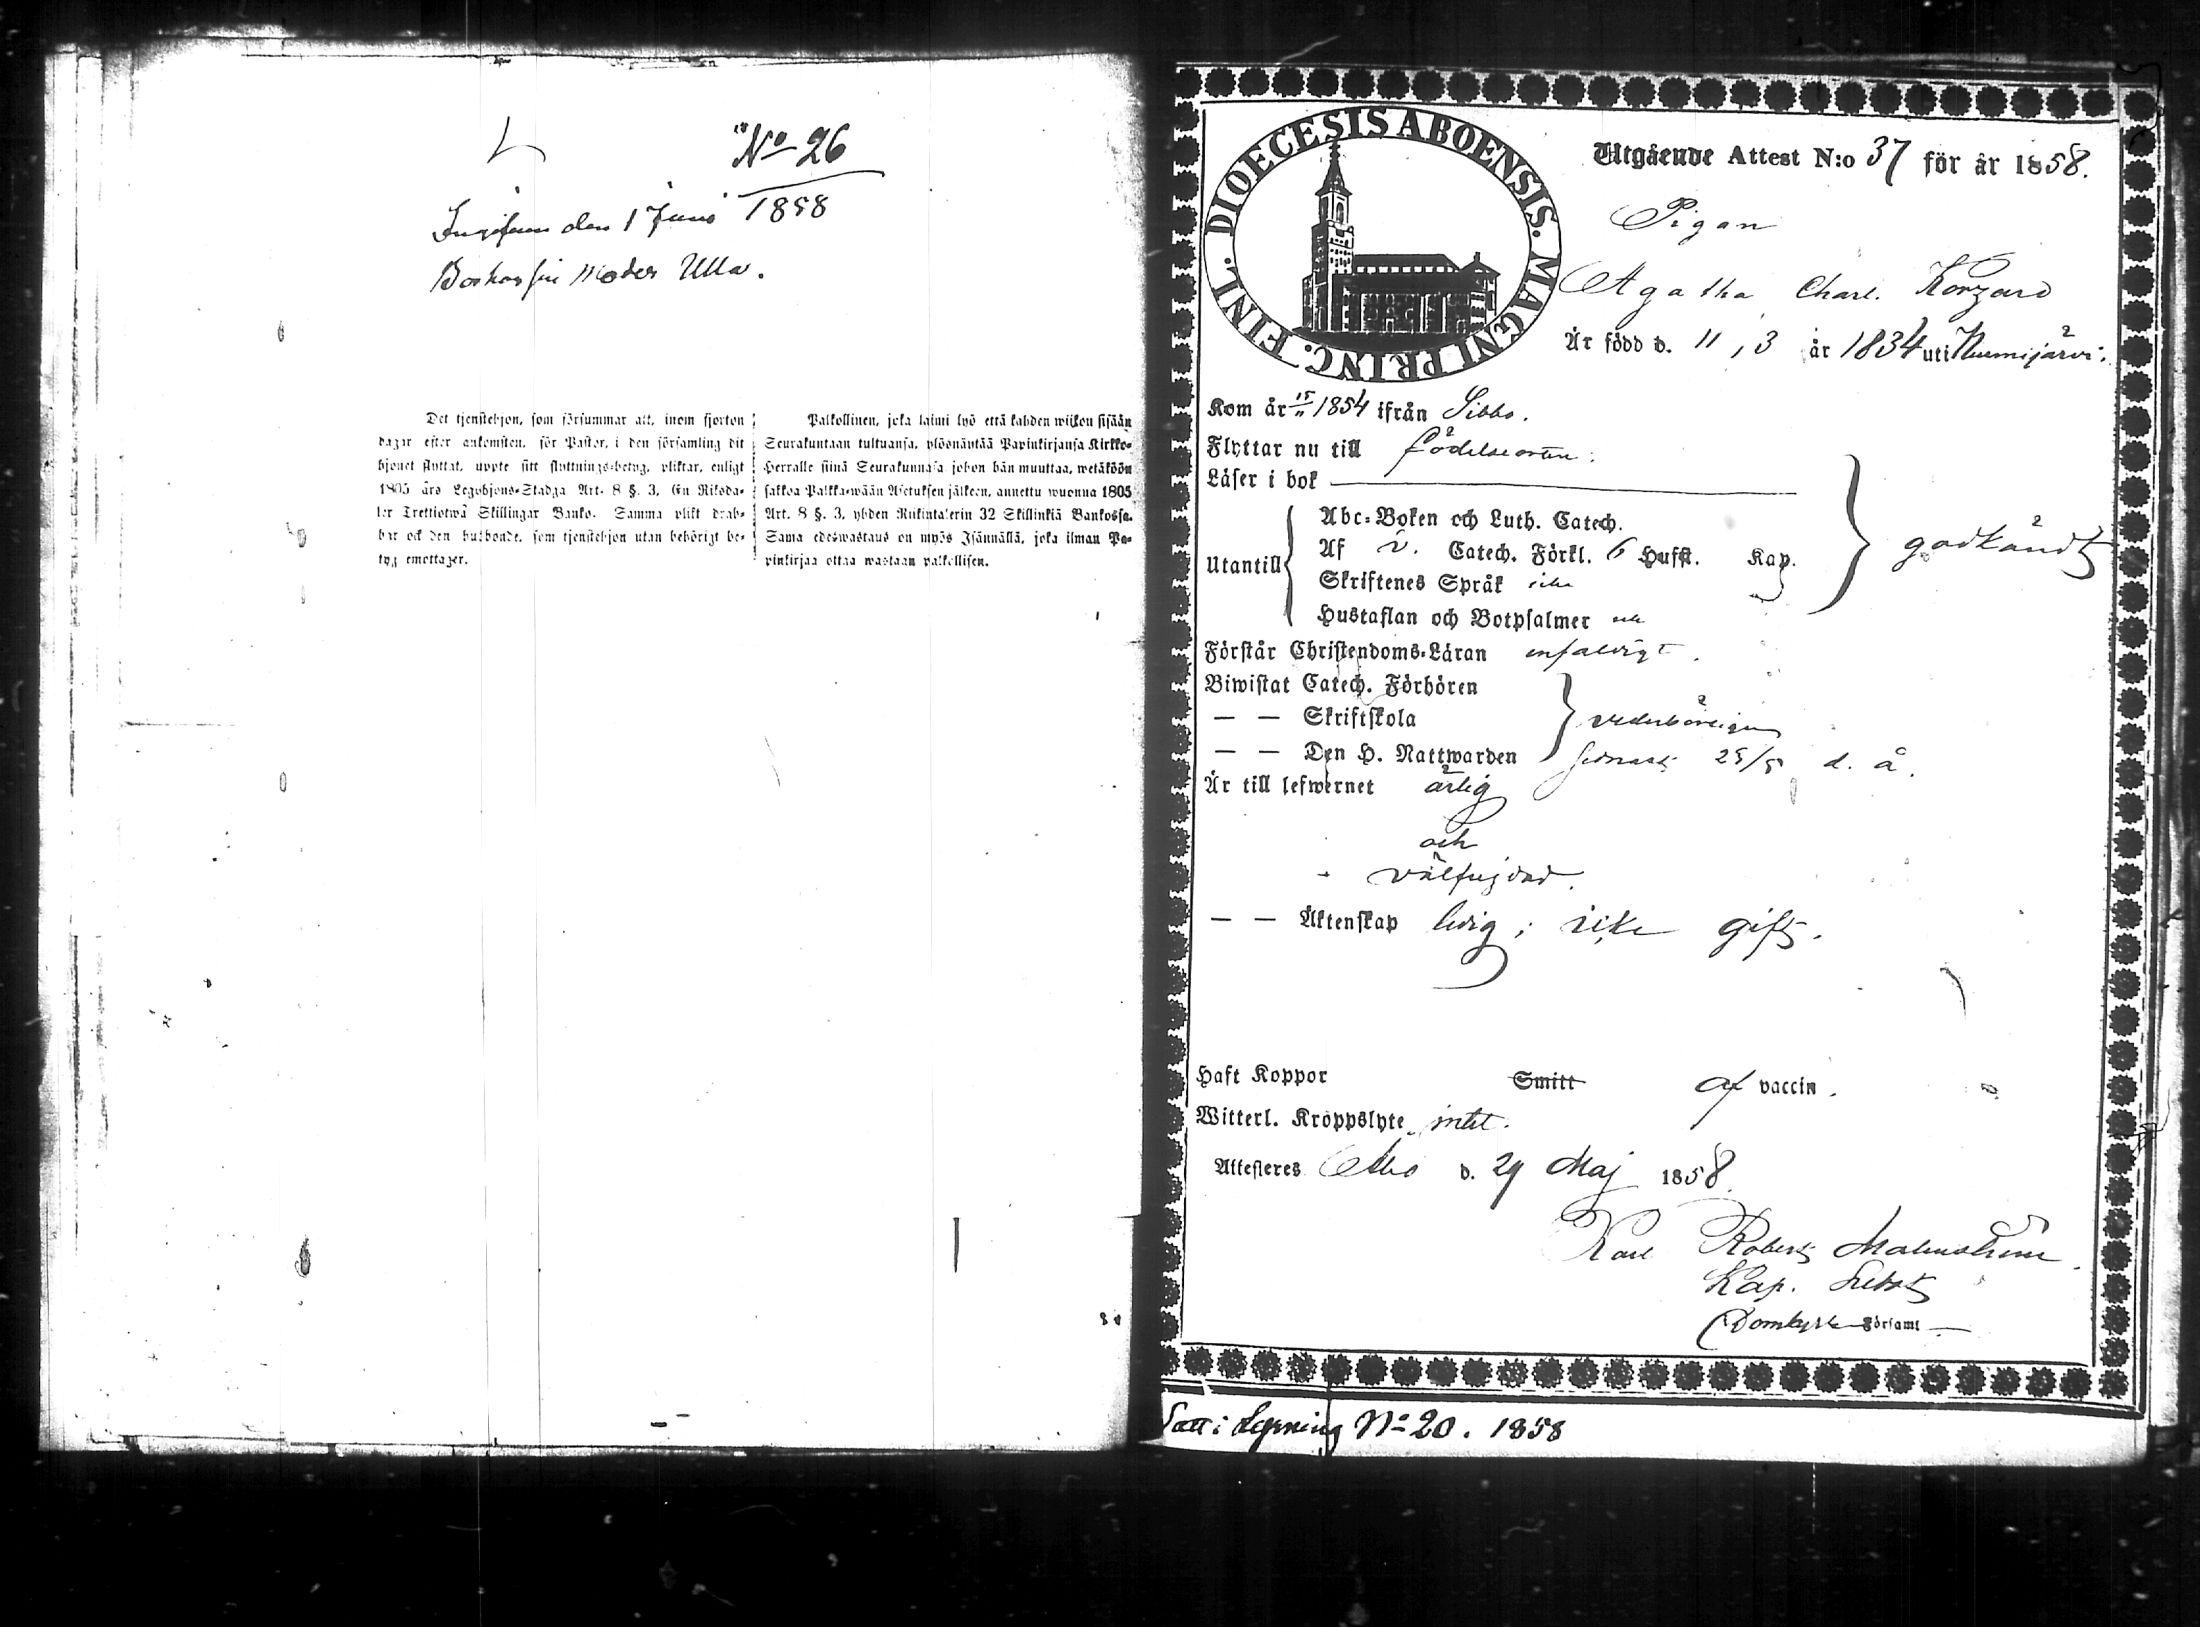 No 26
den 1 Juni 1858
Bor hos sin Moder Ulla.
Det tjenstehjon, som försummar att, inom fjorton
dagar efter ankomsten, för Pastor, i den församling dit
hjonet flyttat, uppte sitt flyttnings-betyg, pliktar, enligt
1805 års Legohjons-Stadga Art. 8 §. 3, En Riksda-
ler Trettiotwå Skillingar Banko. Samma plikt drab-
bar ock den husbonde, som tjenstehjon utan behörigt be-
tyg emottager.
Palkollinen, joka laimi lyö että kahden wiikon sisään
Seurakuntaan tultuansa, ylösnäyttää Papinkirjansa Kirkko-
Herralle siinä Seurakunnasa johon hän muuttaa, wetäköön
sakkoa Palkka-wään Asetuksen jälkeen, annettu wuonna 1805
Art. 8 §. 3, yhden Riikintalerin 32 Skillinkiä Bankossa.
Sama edeswastaus on myös Isännällä, joka ilman Pa-
pinkirjaa ottaa wastaan palkollisen.
DIOECESIS ABOENSIS. MAGNI PRINC. FINL.
Utgående Attest N:o 37 för år 1858.
Pigan
Agatha Charl. Korzard
Är född d. 11, 3 år 1834 uti Nurmijärvi.
Kom år 15/11 1854 ifrån Sibbo.
Flyttar nu till födelseorten.
Läser i bok
Utantill
Abc-Boken och Luth. Catech.
Af v. Catech. Förkl. 6 Hufst. Kap.
Skriftenes Språk
Hustaflan och Botpsalmer
godkändt
Förstår Christendoms-Läran enfaldigt.
Biwistat Catech. Förhören
— — Skriftskola
— — Den H. Nattwarden
vederbörligen
senast 25/5 d. å.
Är till lefwernet ärlig
och
välfrejdad.
— — Äktenskap ledig; icke gift.
Haft Koppor Smitt af vaccin.
Witterl. Kroppslyte intet.
Attesteras Åbo d. 29 Maj 1858.
Karl Robert Malmström
Kap.
Domkyrko Församl
N:o 20. 1858